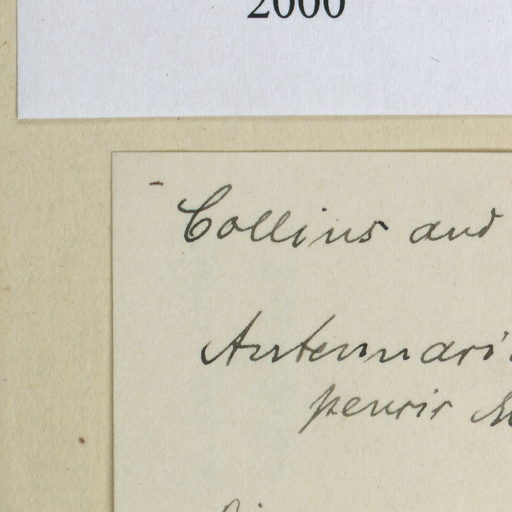 2000
Collins and
Antennari
pensis